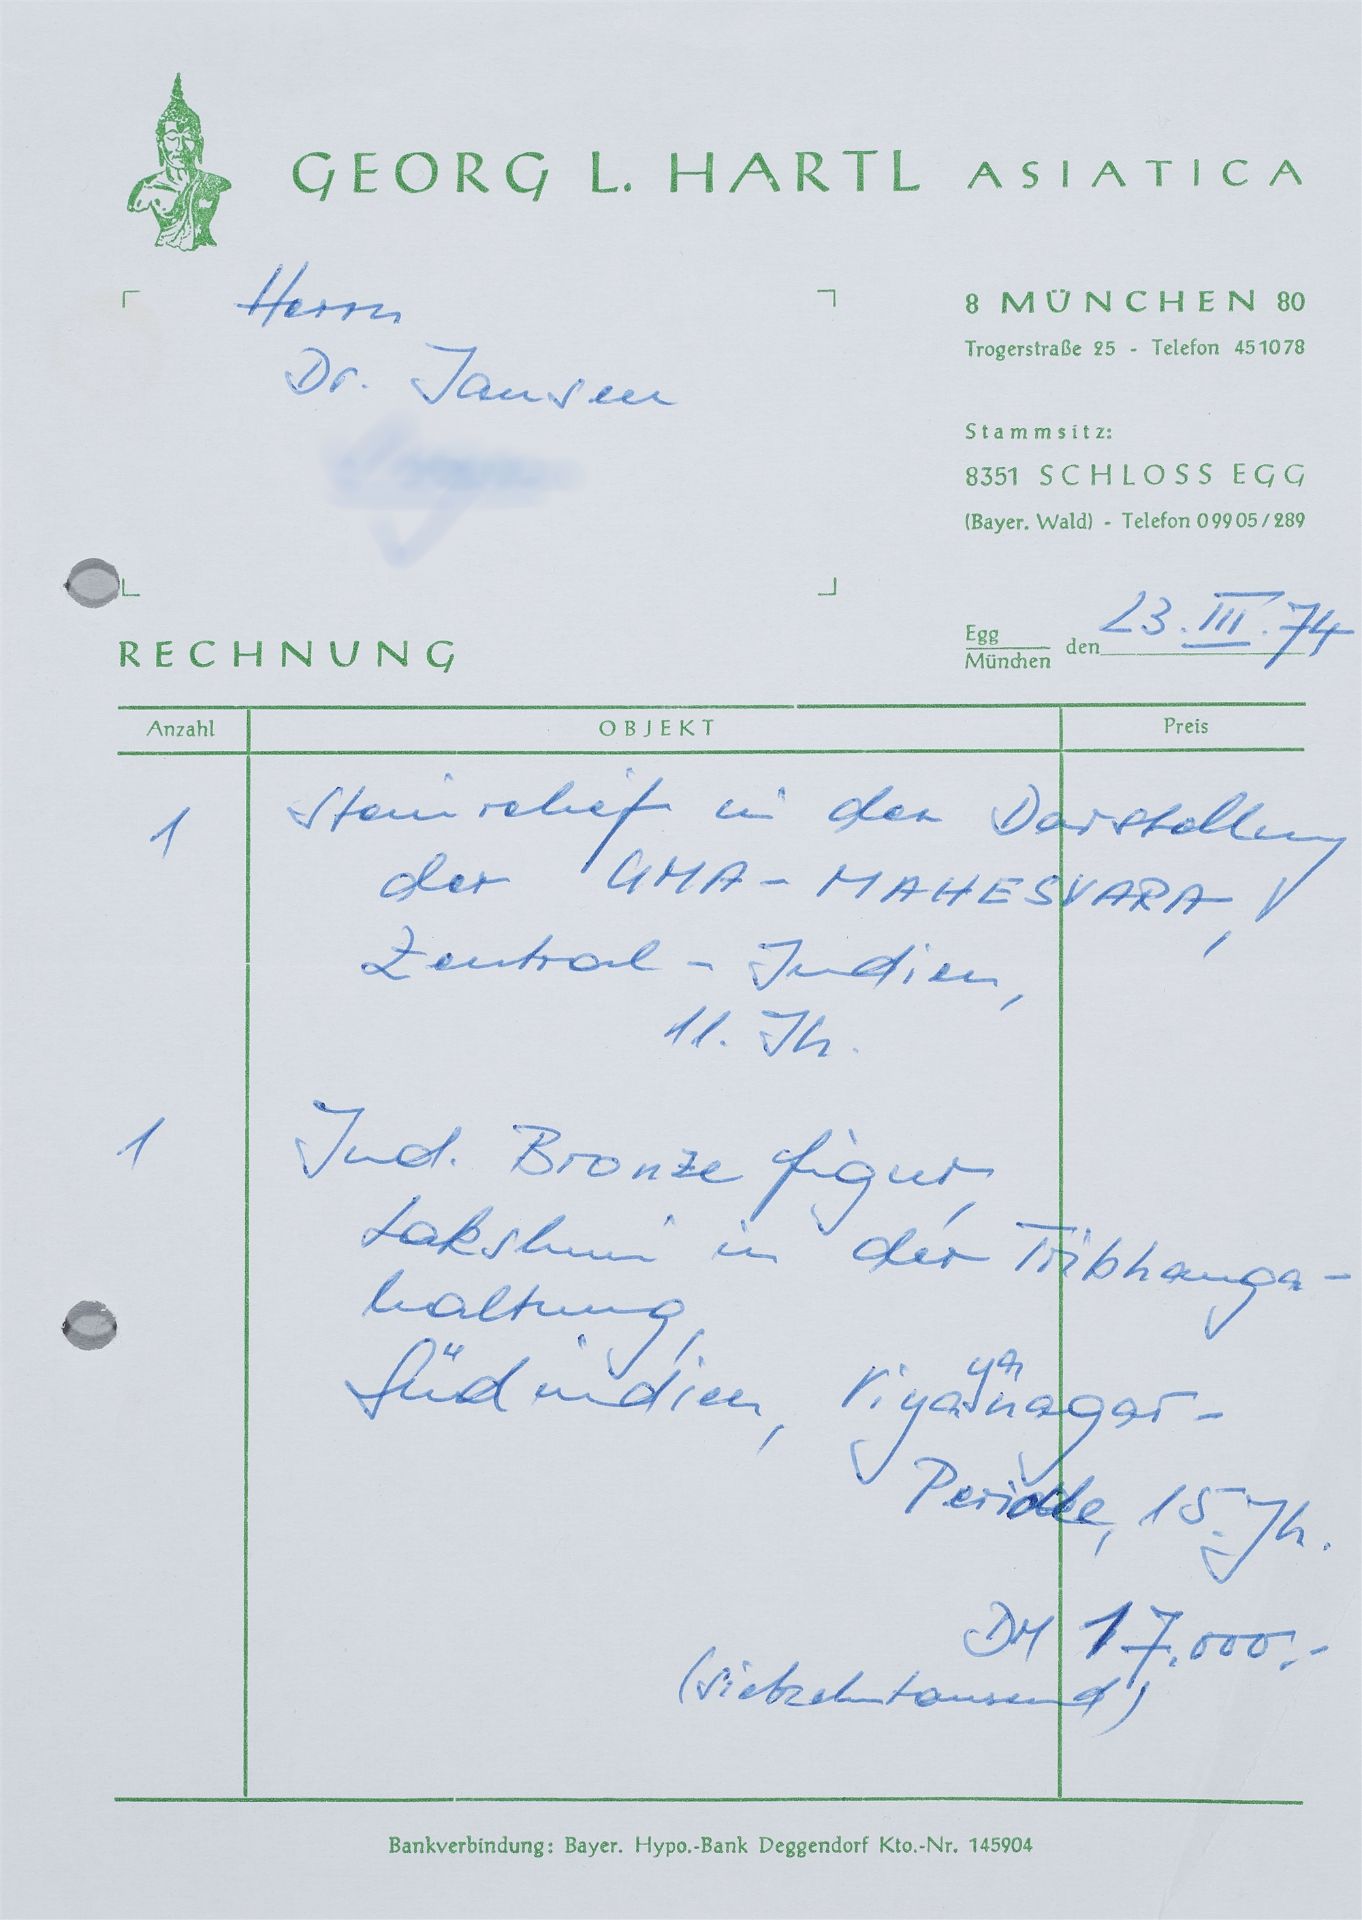 GEORG L. HARTL ASIATICA
Herrn
Dr. Jansen
8 MÜNCHEN 80
Trogerstraße 25 - Telefon 451078
Stammsitz:
8351 SCHLOSS EGG
(Bayer. Wald) - Telefon 09905/289
RECHNUNG
Egg
München den 23.III.74
Anzahl OBJEKT Preis
1 Steinrelief in der Darstellung
der UMA-MAHESVARA,
Zentral-Indien,
11. Jh.
1 Ind. Bronzefigur,
Lakshmi in der Tribhanga-
haltung,
Südindien,
Periode, 15. Jh.
DM 17.000.-
(siebzehntausend)
Bankverbindung: Bayer. Hypo.-Bank Deggendorf Kto.-Nr. 145904